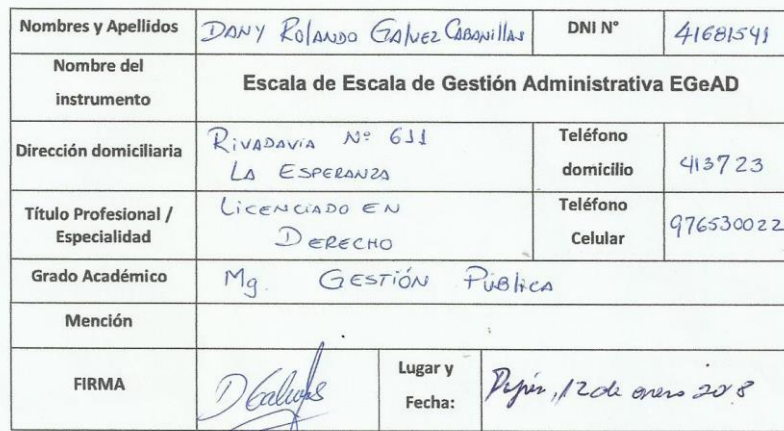 Nombres y Apellidos DANY ROLANDO GALVEZ CABANILLAS DNI N° 41681541
Nombre del instrumento Escala de Escala de Gestión Administrativa EGeAD
Dirección domiciliaria RIVADAVIA Nº 611
LA ESPERANZA
Teléfono domicilio 413723
Título Profesional / Especialidad LICENCIADO EN
DERECHO
Teléfono Celular 976530022
Grado Académico Mg. GESTIÓN PÚBLICA
Mención
FIRMA
Lugar y Fecha: 12 de enero 2018